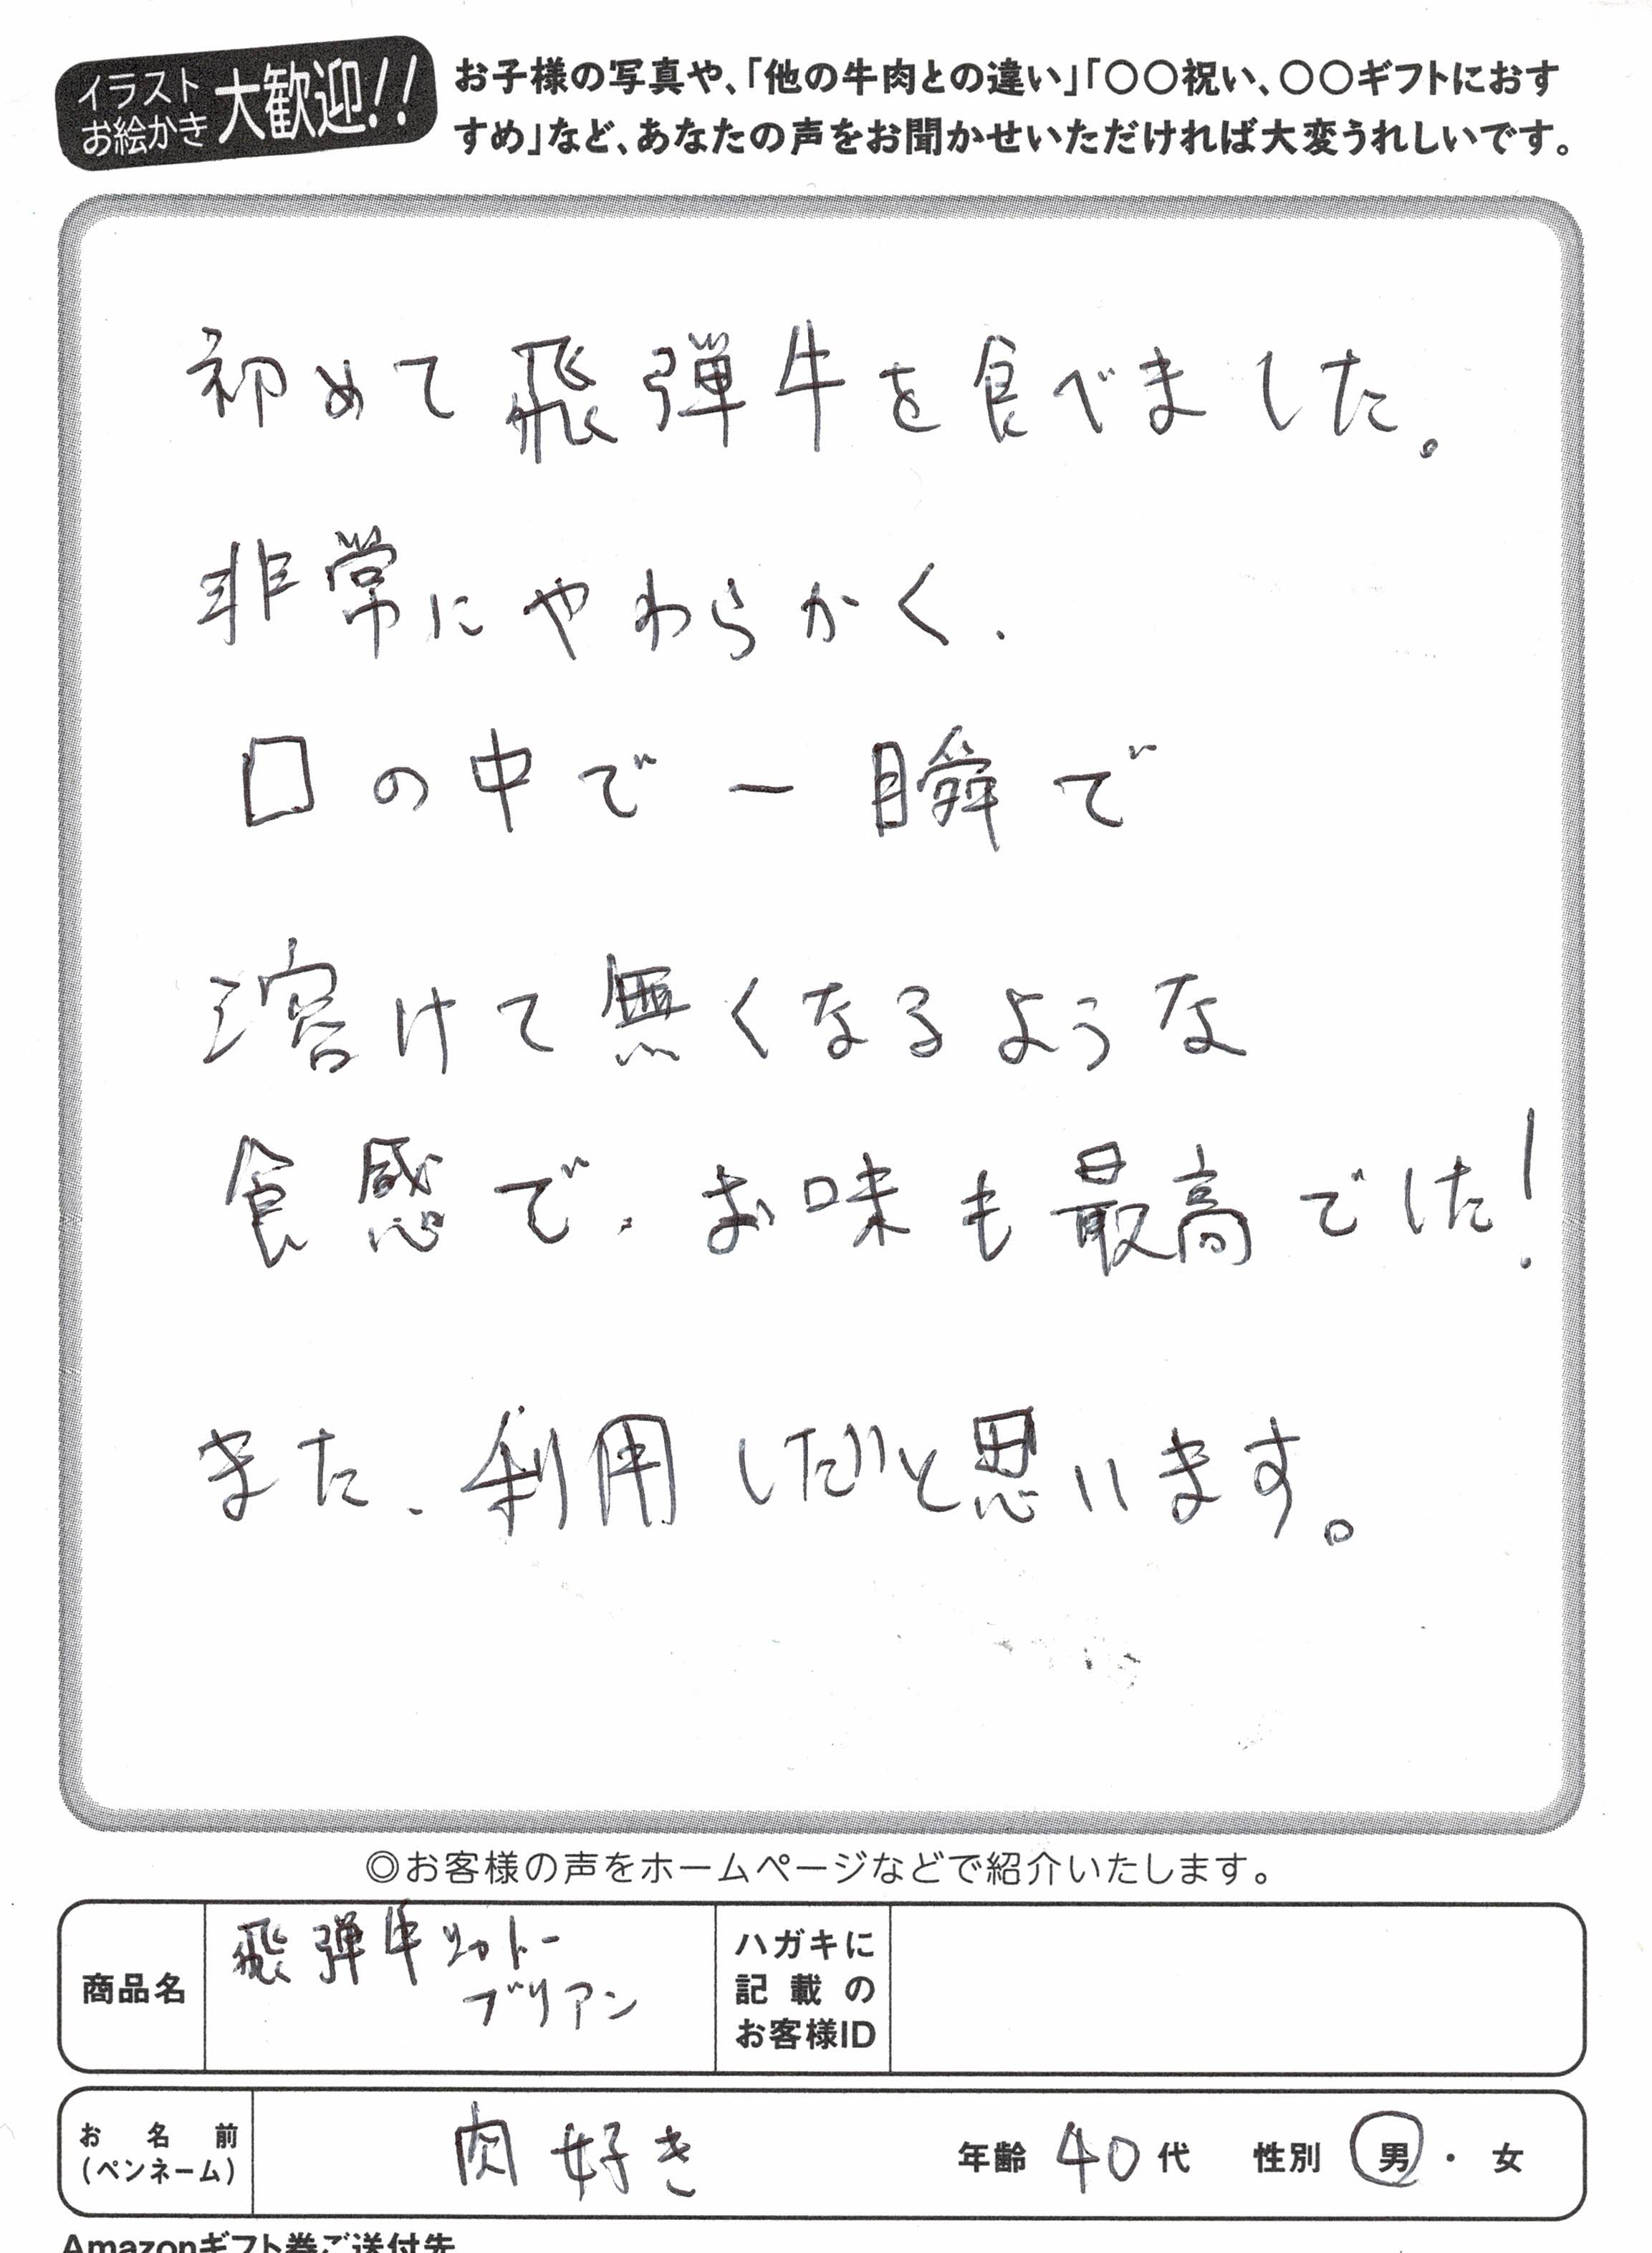 イラスト
お絵かき
大歓迎!!
お子様の写真や、「他の牛肉との違い」「〇〇祝い、〇〇ギフトにおす
すめ」など、あなたの声をお聞かせいただければ大変うれしいです。
初めて飛弾牛を食べました。
非常にやわらかく、
口の中で一瞬で
溶けて無くなるような
食感で、お味も最高でした!
また、利用したいと思います。
◎お客様の声をホームページなどで紹介いたします。
商品名
飛弾牛シャトー
ブリアン
ハガキに
記載の
お客様ID
お名前
(ペンネーム)
肉好き
年齢 40代 性別 男・女
Amazonギフト券ご送付先